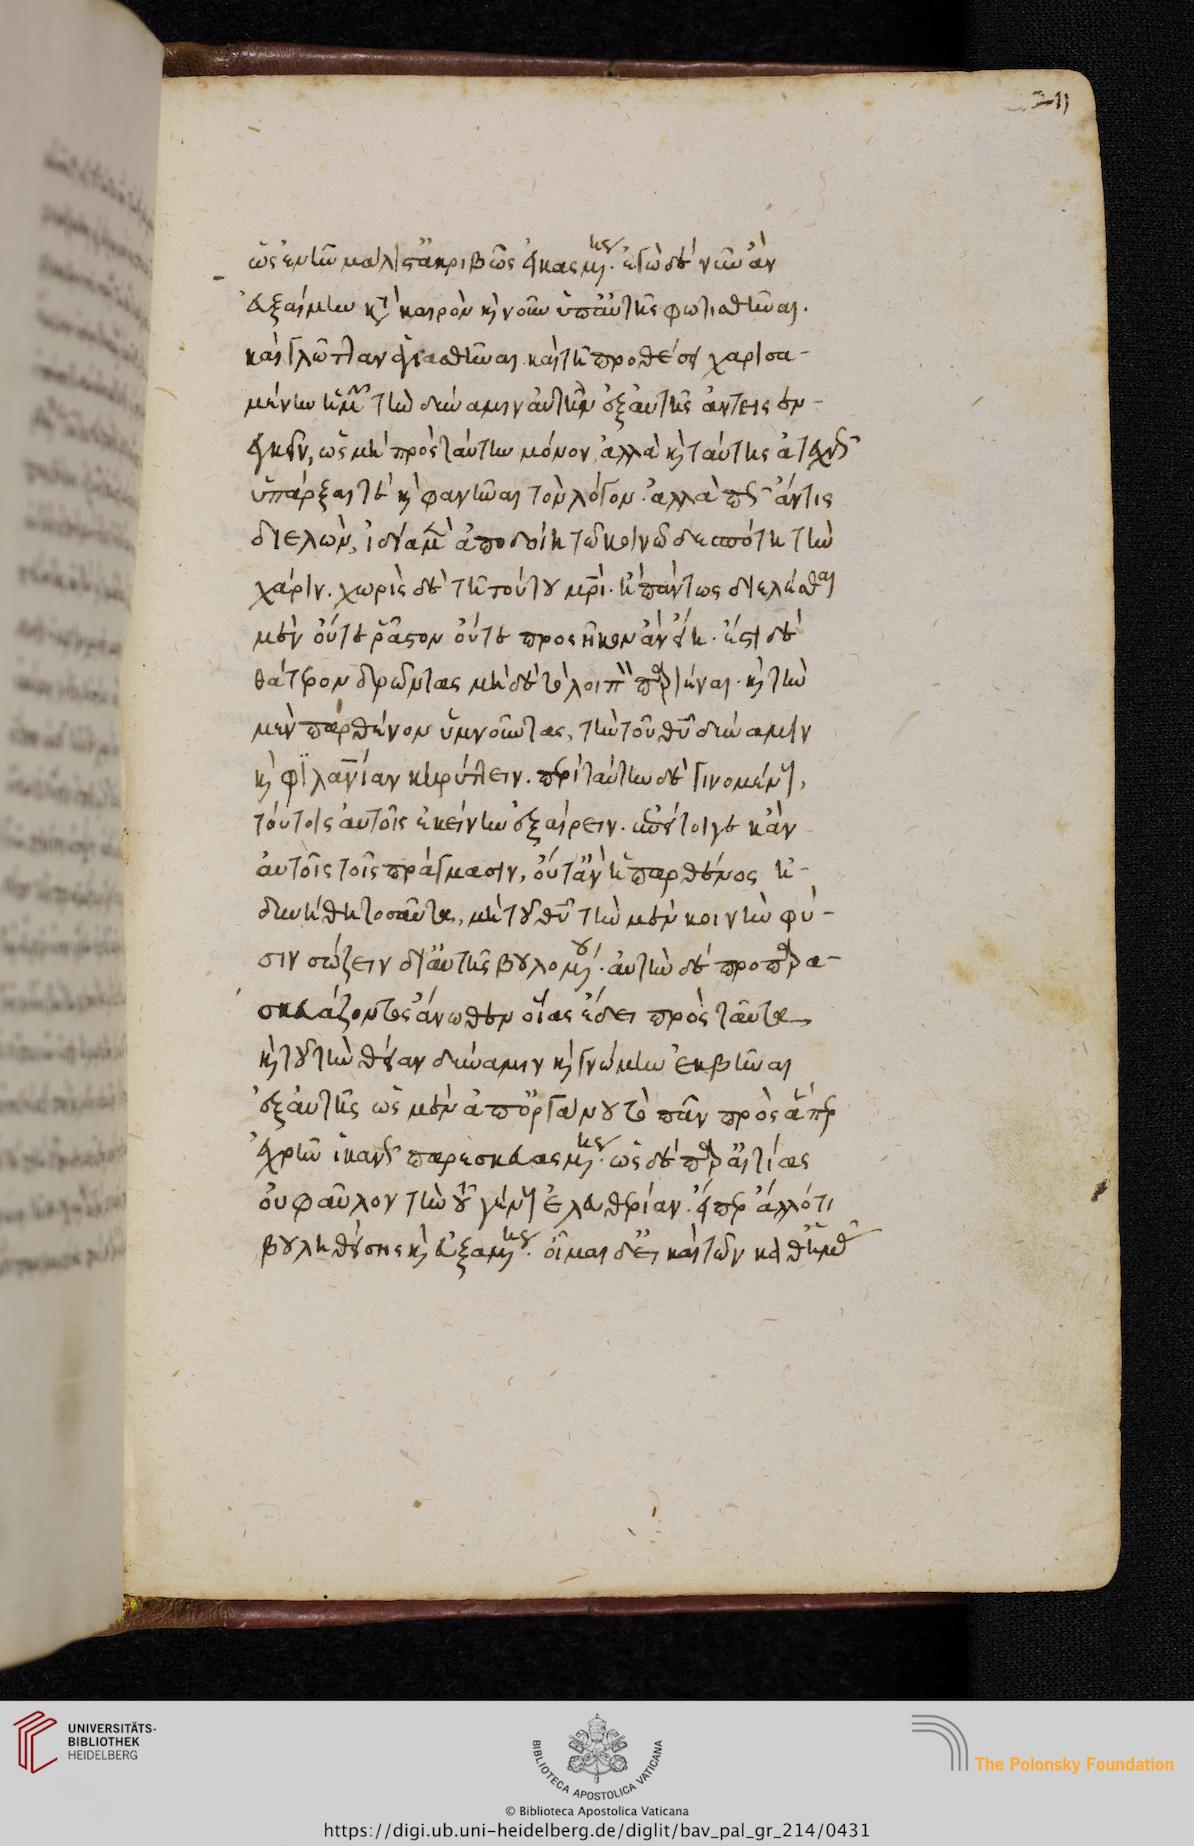 211
ὡς ἐν τῶ μάλιστα ἀκριβῶς
εὐξαίμην καὶ καιρὸν καὶ νοῦν ὑπ' αὐτῆς φωτισθῆναι.
καὶ γλῶτταν ἁγιασθῆναι. καὶ τῆ προθέσει χαρισα-
μένην τὴν δύναμιν αὐτὴν ἐξ αὐτῆς
ὡς μὴ πρὸς ταύτην μόνον ἀλλὰ καὶ ταύτης
ὑπάρξαι τὲ καὶ φανῆναι τὸν λόγον. ἀλλὰ
διελὼν, ἰδία ἀποδοίη τῶ κοινῶ δεσπότη τὴν
χάριν. χωρὶς δὲ τῆ τούτου μρὶ. ἢ πάντως διελέσθαι
μὲν οὔτε ῥᾷστον οὔτε προσῆκον ἂν εἴη. ἔστι δὲ
θάτερον δρῶντας μηδὲ τὸ λοιπὸν παριέναι. καὶ τὴν
μὲν παρθένον ὑμνοῦντας, τὴν τοῦ θυ δύναμιν
καὶ φιλανίαν κηρύττειν. περὶ ταύτην δὲ γινομένους,
τούτοις αὐτοῖς ἐκείνην ἐξαίρειν. κἂν
αὐτοῖς τοῖς πράγμασιν, οὔτ' ἂν ἡ παρθένος ἠ-
δυνήθη τοσαῦτα, μὴ τοῦ θυ τὴν μὲν κοινὴν φύ-
σιν σώζειν δι' αὐτῆς βουλομένου. αὐτὴν δὲ προπαρα-
σκευάζοντος ἄνωθεν οἵας ἔδει πρὸς ταῦτα
καὶ τοῦ τὴν θείαν δύναμιν καὶ γνώμην ἐκβῆναι
ἐξ αὐτῆς ὡς μὲν ἀπ' ὀργάνου τὸ πᾶν πρὸς ἅπερ
ἐχρῆν ἱκανῶς παρεσκευασμένης. ὡς δὲ παρ' αἰτίας
οὐ φαῦλον τὴν τοῦ γένους ἐλευθερίαν. εἴπερ ἄλλό τι
βουληθείσης καὶ εὐξαμένης. οἶμαι δεῖ καὶ τῶν καθ'
UNIVERSITÄTS-
BIBLIOTHEK
HEIDELBERG
BIBLIOTECA APOSTOLICA VATICANA
The Polonsky Foundation
© Biblioteca Apostolica Vaticana
https://digi.ub.uni-heidelberg.de/diglit/bav_pal_gr_214/0431